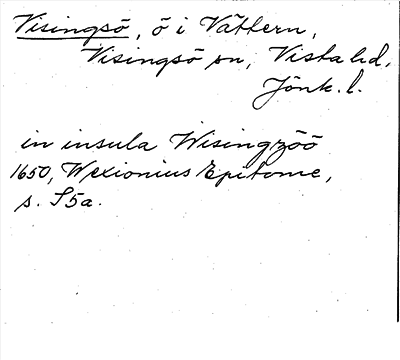 Visingsö, ö i Vättern,
Visingsö sn, Vista hd,
Jönk. l.
in insula Wisingzöö
1650, Wexionius Epitome,
s. S5a.